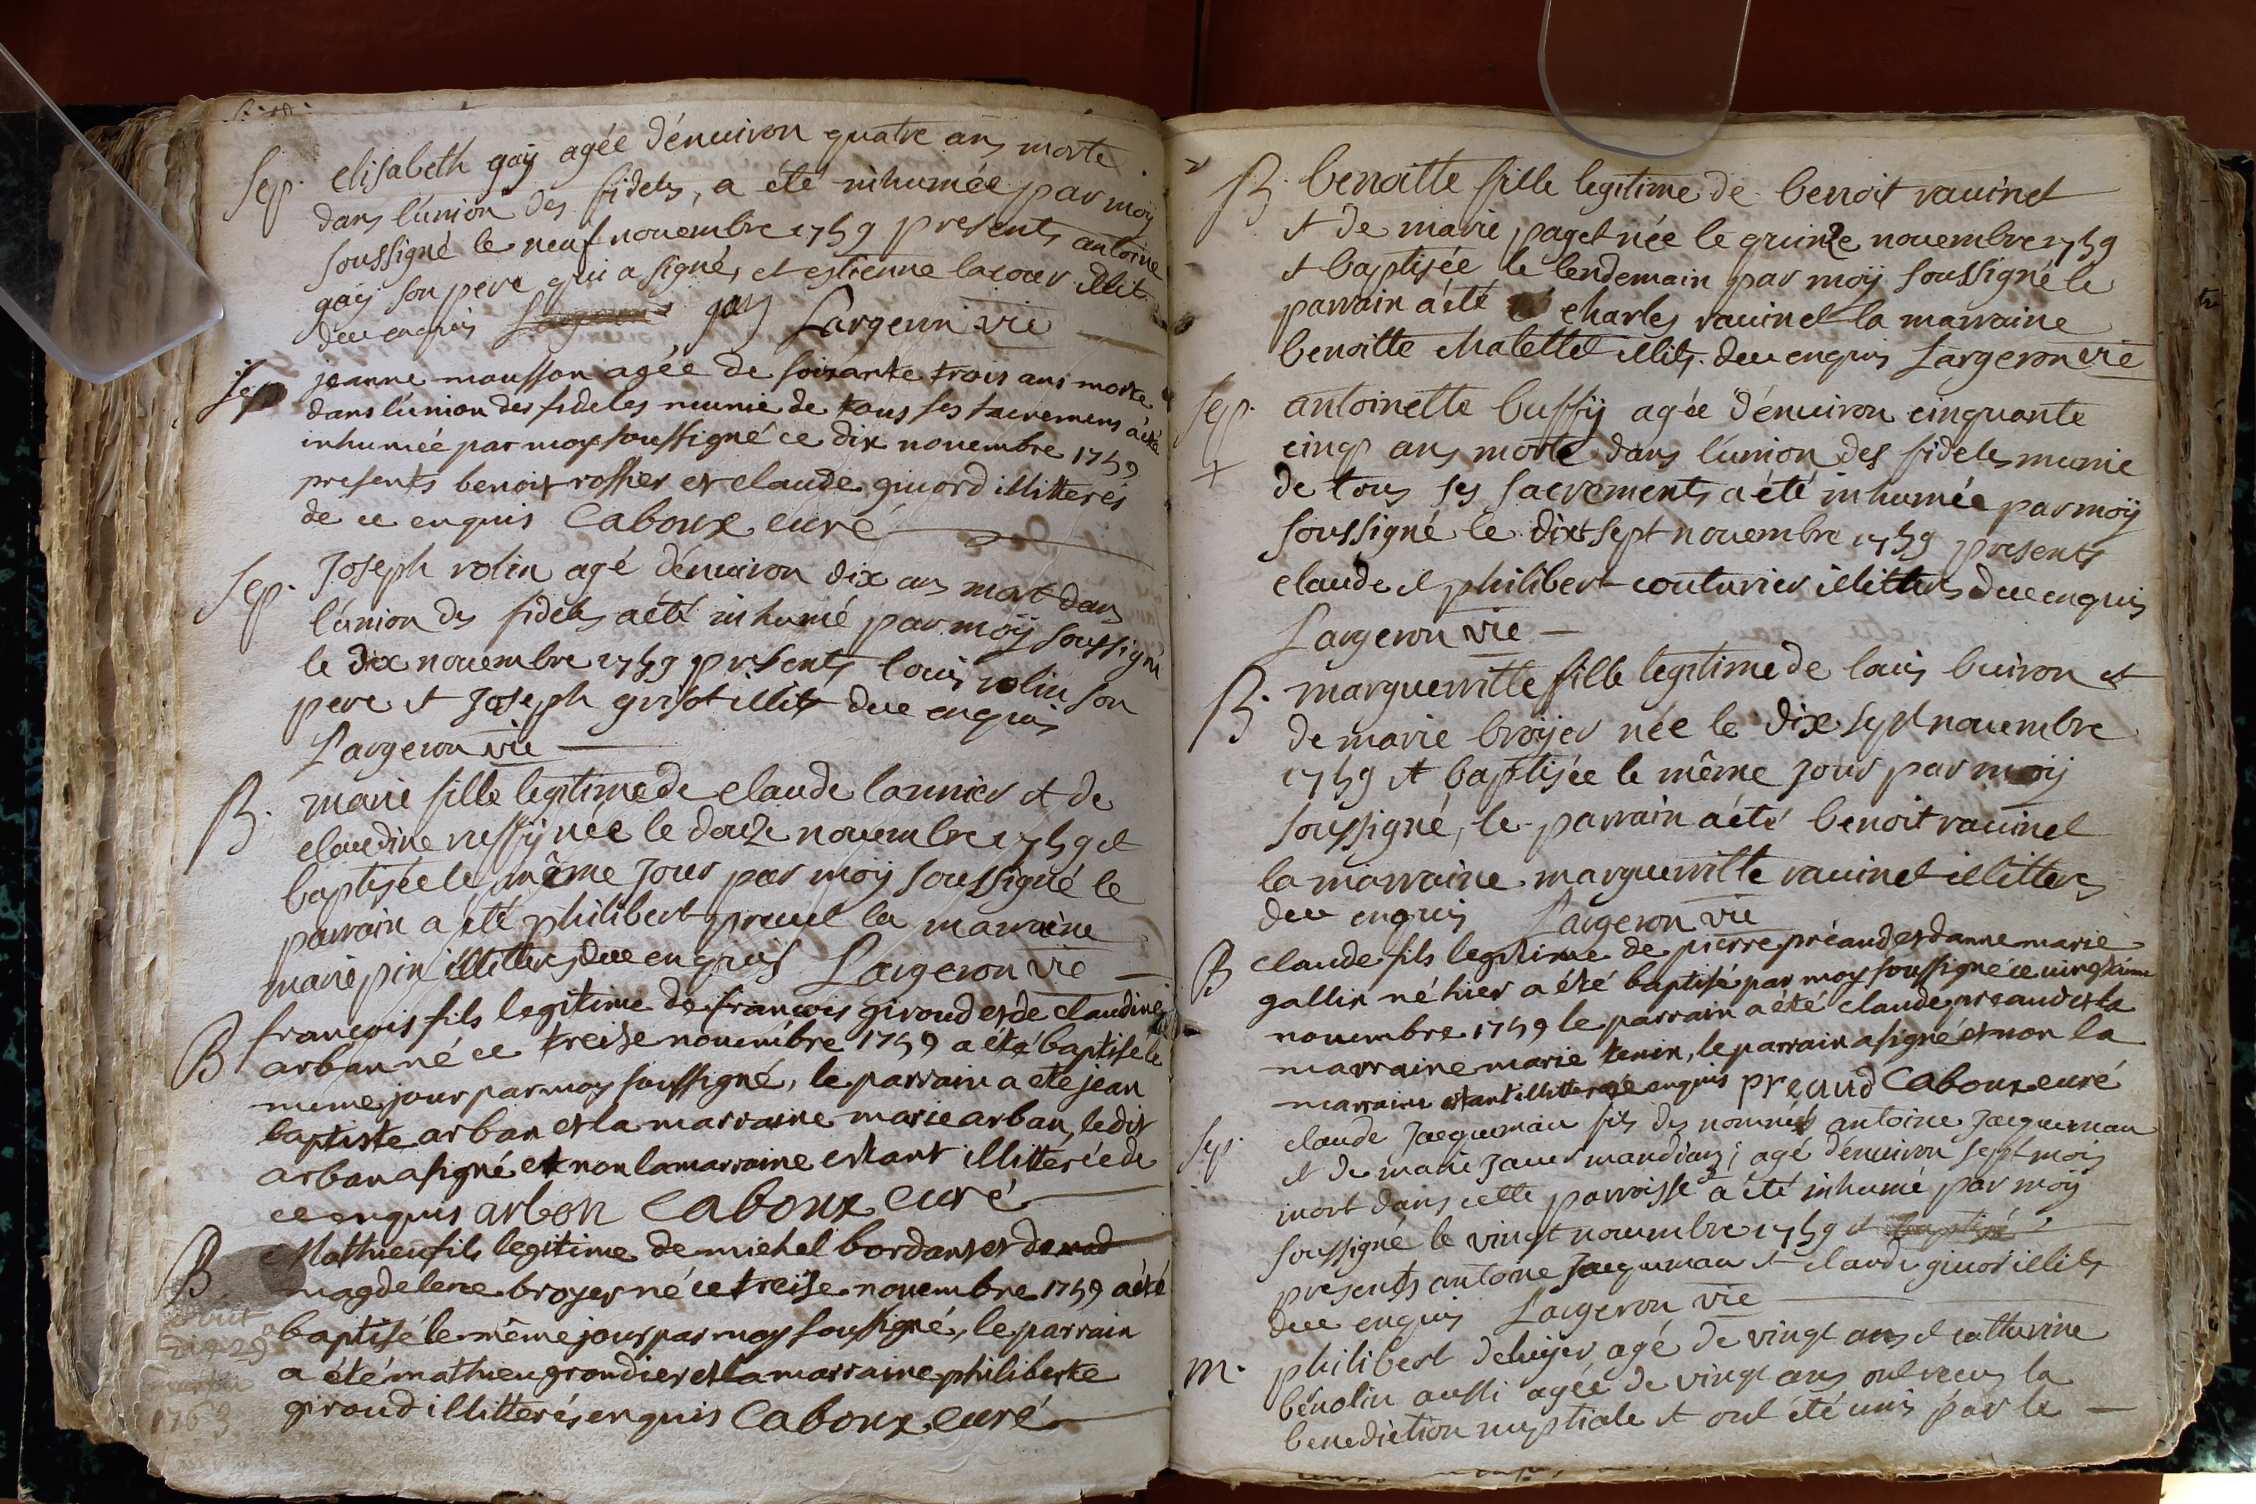 Sep. elisabeth gaÿ agée d'énuiron quatre ans morte
dans l'union des fideles, a été inhumée par moÿ
soussigné le neuf nouembre 1759 presents antoine
gaÿ son pere qui a signé, et estienne lacour illit.
de ce enquis gaÿ Largeron vic
Sep jeanne mousson agée de soixante trois ans morte
dans l'union des fideles munie de tous ses sacremens a été
inhumée par moy soussigné ce dix novembre 1759
presents benoit rossier et claude giuord illitterés
de ce enquis Caboux curé
Sep. Joseph rolin agé d'énuiron dix ans mort dans
l'union des fideles a été inhumé par moÿ soussigné
le dix nouembre 1759 presents louis rolin son
pere et Joseph grisot illit de ce enquis
Largeron vic
B. marie fille legitime de claude lannier et de
claudine ruffÿ née le douze nouembre 1759 et
baptisée le même jour par moÿ soussigné le
parrain a été philibert preuel la marraine
marie pin illitteres de ce enquis Largeron vic
B françois fils legitime de françois giroud et de claudine
arban né ce treise nouembre 1759 a été baptise le
meme jour par moy soussigné, le parrain a ete jean
baptiste arban et la marraine marie arban, le dit
arban a signé et non la marraine estant illitterée de
ce enquis arbon Caboux curé
B Mathieu fils legitime de michel bordant et de mad
magdelene broyer né ce treise novembre 1759 a été
baptisé le même jour par moy soussigné, le parrain
a été mathieu grondier et la marraine philiberte
giroud illitterés enquis Caboux curé
1763
B. benoitte fille legitime de benoit rauinet
et de marie paget née le quinze nouembre 1759
et baptisée le lendemain par moÿ soussigné le
parrain a été charles rauinet la marraine
benoitte chalettet illits. de ce enquis Largeron vic
Sep. antoinette buffÿ agée d'énuiron cinquante
+ cinq ans morte dans l'union des fideles munie
de tous ses sacrements a été inhumée par moÿ
soussigné le dixsept nouembre 1759 presents
claude et philibert couturier illitteres de ce enquis
Largeron vic
B. marguerritte fille legitime de louis buiron et
de marie broÿer née le dix sept nouembre
1759 et baptisée le même jour par moÿ
soussigné, le parrain a été benoit rauinet
la marraine marguerritte rauinet illitteres
de ce enquis Largeron vic
B claude fils legitime de pierre préaud et danne marie
gallin né hier a été baptisé par moy soussigné ce uingtieme
nouembre 1759 le parrain a été claude preaud et la
marraine marie tenin, le parrain a signé et non la
marraine estant illitterée enquis preaud Caboux curé
Sep. claude Jacquenau fils des nommés antoine Jacquenau
et de marie Jauer mandians, agé d'énuiron sept mois
mort dans cette parroisse a été inhumé par moÿ
soussigné le vingt nouembre 1759 et baptisé
presents antoine Jacquenau et claude giuor illits
de ce enquis Largeron vic
M. philibert deluÿer agé de vingt ans et catterine
benolin aussi agée de vingt ans ont receu la
benediction nuptiale et ont été unis par le